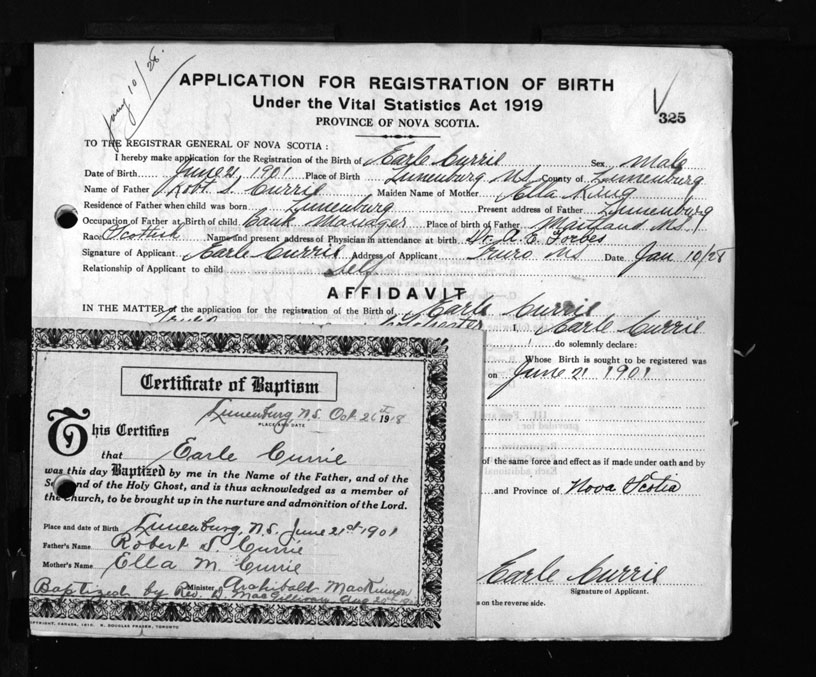 Jany 10/28.
APPLICATION FOR REGISTRATION OF BIRTH
Under the Vital Statistics Act 1919
PROVINCE OF NOVA SCOTIA.
325
TO THE REGISTRAR GENERAL OF NOVA SCOTIA :
I hereby make application for the Registration of the Birth of Earle Currie Sex Male
Date of Birth June 21, 1901 Place of Birth Lunenburg N.S. County of Lunenburg
Name of Father Robt. S. Currie Maiden Name of Mother Ella King
Residence of Father when child was born Lunenburg Present address of Father Lunenburg
Occupation of Father at Birth of child Bank Manager Place of birth of Father Maitland N.S.
Race Scottish Name and present address of Physician in attendance at birth Dr. A. E. Forbes
Signature of Applicant Earle Currie Address of Applicant Truro NS Date Jan 10/28
Relationship of Applicant to child Self
AFFIDAVIT
IN THE MATTER of the application for the registration of the Birth of Earle Currie
Truro Colchester I, Earle Currie
do solemnly declare:
Whose Birth is sought to be registered was
on June 21 1901
of the same force and effect as if made under oath and by
and Province of Nova Scotia
Earle Currie
Signature of Applicant.
s on the reverse side.
Certificate of Baptism
Lunenburg, N.S. Oct. 26th 1918
PLACE AND DATE
This Certifies
that Earle Currie
was this day Baptized by me in the Name of the Father, and of the
and of the Holy Ghost, and is thus acknowledged as a member of
the Church, to be brought up in the nurture and admonition of the Lord.
Place and date of Birth Lunenburg, N.S. June 21st 1901
Father's Name Robert S. Currie
Mother's Name Ella M. Currie
Minister Archibald MacKinnon
Baptized by Rev. D. MacGillivray Aug
COPYRIGHT, CANADA, R. DOUGLAS FRASER, TORONTO